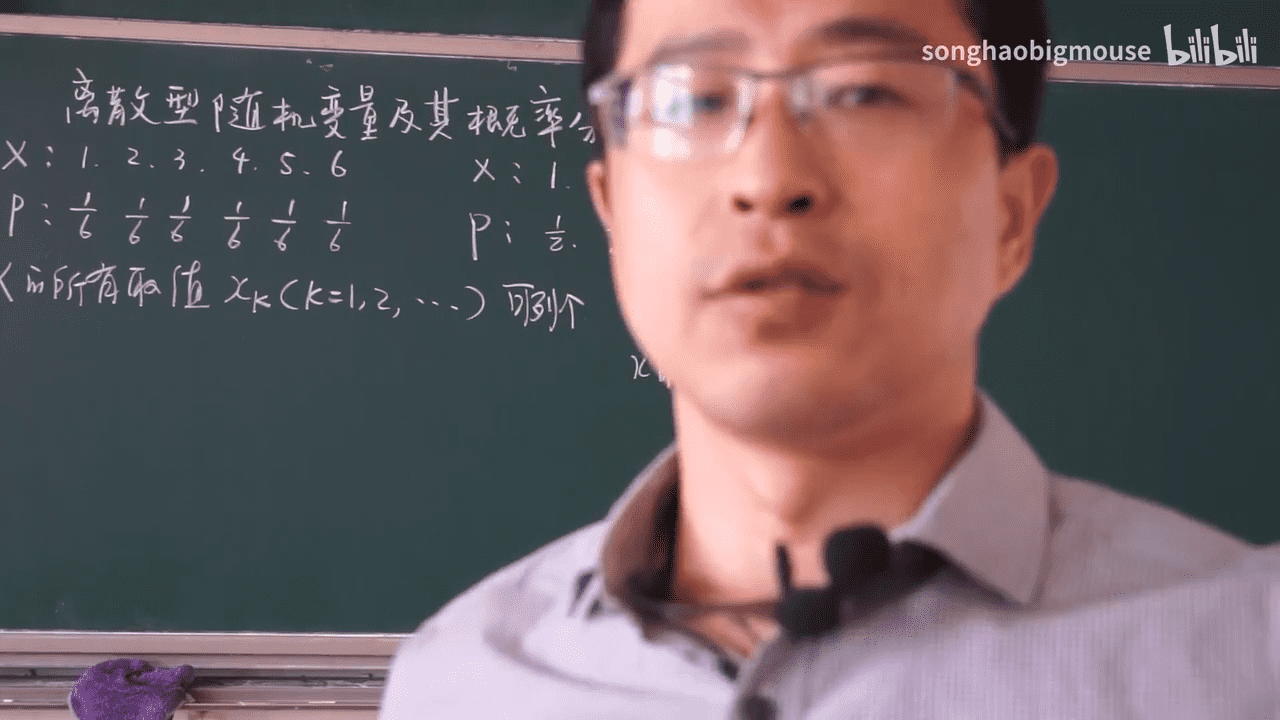 songhaobigmouse bilibili
离散型随机变量及其概率分
X: 1. 2. 3. 4. 5. 6
P: 1/6 1/6 1/6 1/6 1/6 1/6
X: 1.
P: 1/2.
的所有取值 xₖ (k=1,2, ...) 可列个
x